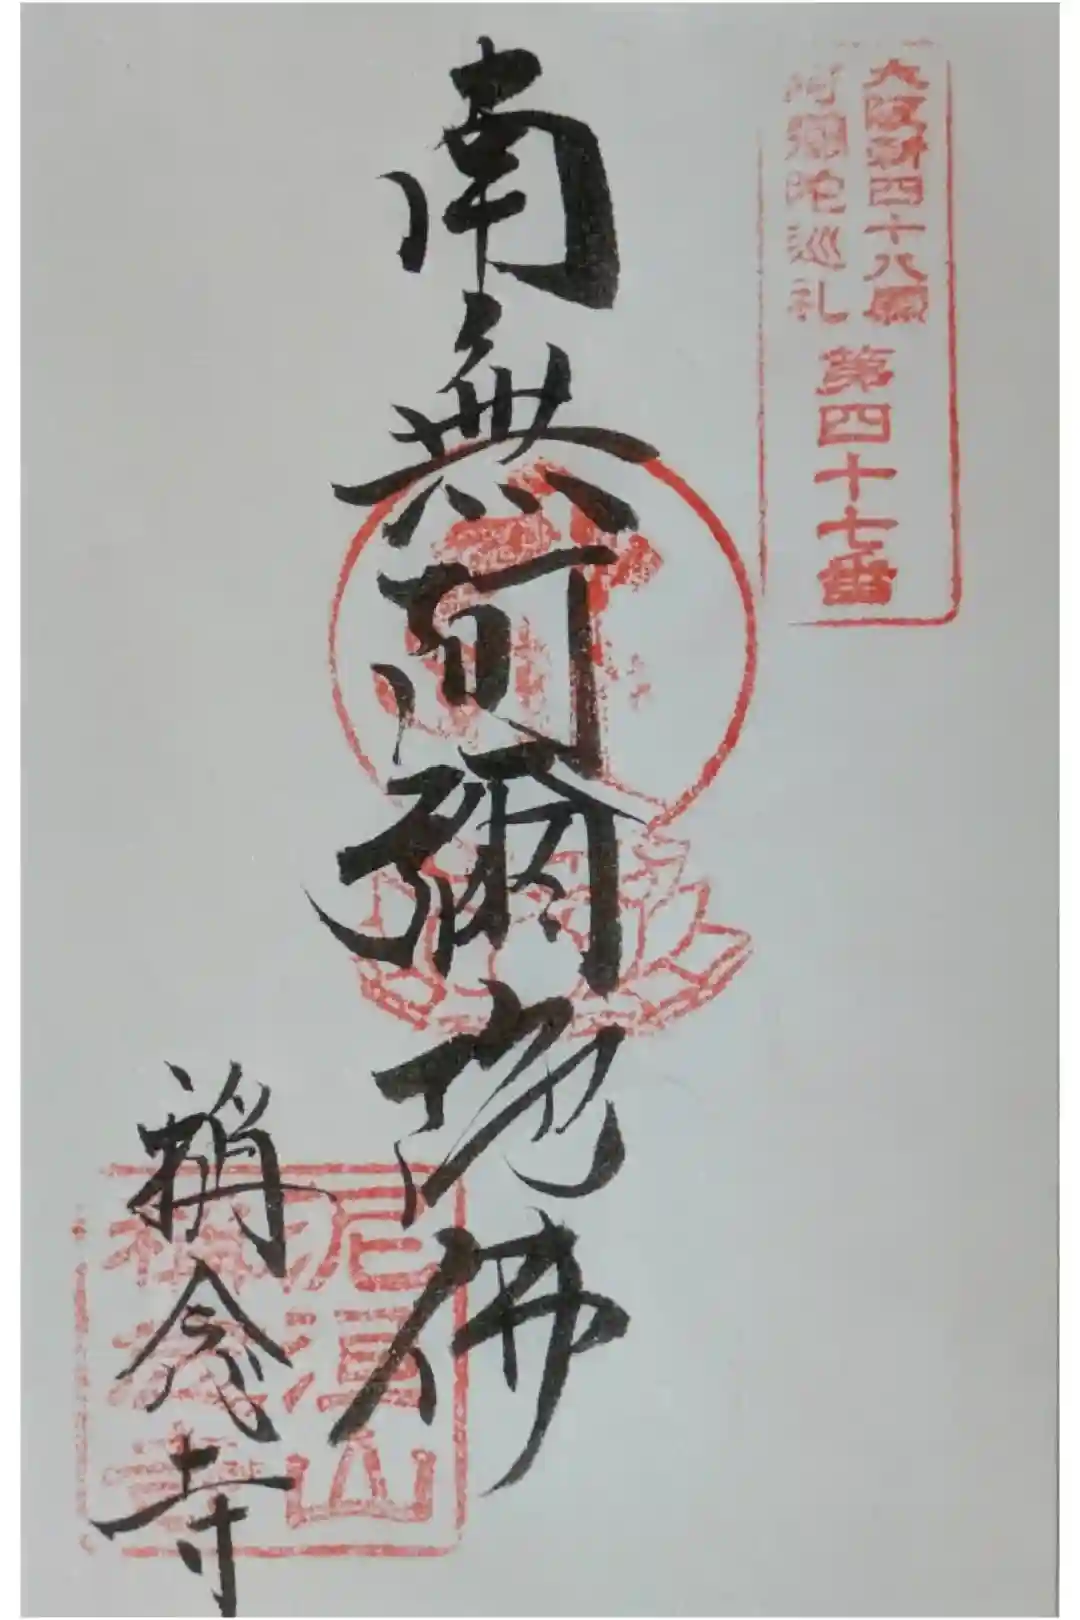 大阪新四十八願
阿彌陀巡礼
第四十七番
南無阿彌陀佛
稱念寺
稱念寺